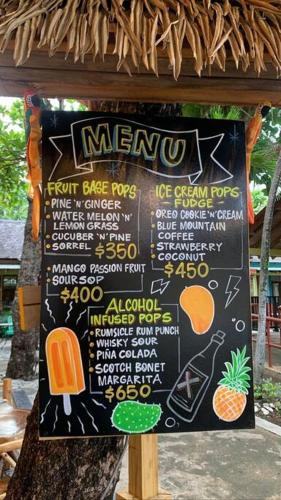 MENU
FRUIT BASE POPS
• PINE 'N' GINGER
• WATER MELON 'N'
LEMON GRASS
• CUCUBER 'N' PINE
• SORREL $350
• MANGO PASSION FRUIT
• SOURSOP
$400
ICE CREAM POPS
- FUDGE -
• OREO COOKIE 'N' CREAM
• BLUE MOUNTAIN
COFFEE
• STRAWBERRY
• COCONUT
$450
ALCOHOL
INFUSED POPS
• RUMSICLE RUM PUNCH
• WHISKY SOUR
• PIÑA COLADA
• SCOTCH BONET
MARGARITA
$650
X